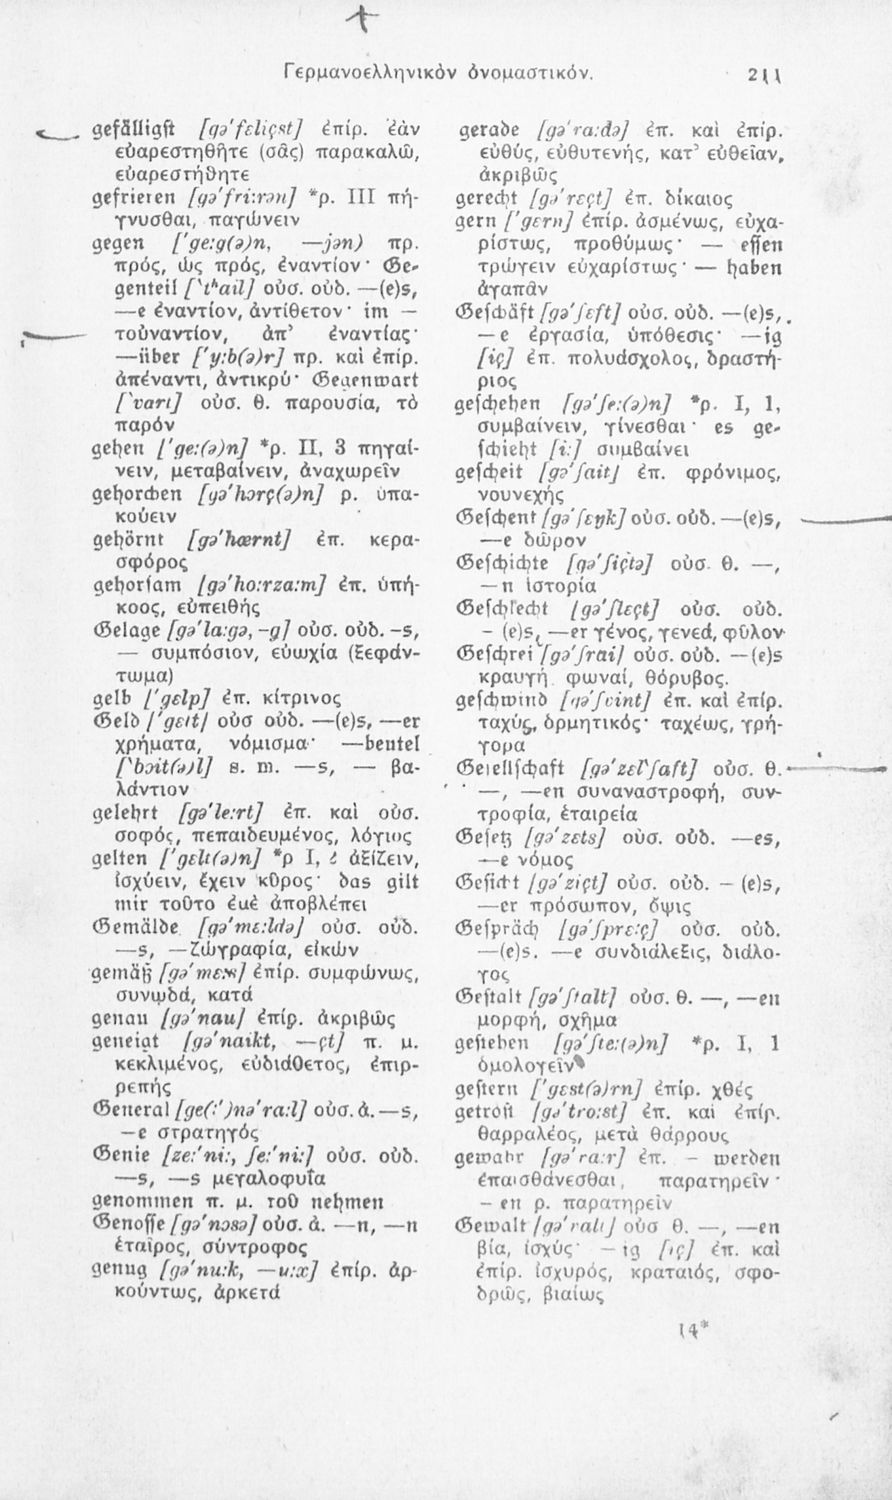 Γερμανοελληνικὸν ὀνομαστικόν.
211
gefälligst [gə'fɛliçst] ἐπίρ. ἐὰν
εὐαρεστηθῆτε (σᾶς) παρακαλῶ,
εὐαρεστήθητε
gefrieren [gə'fri:rən] *ρ. III πή-
γνυσθαι, παγώνειν
gegen ['ge:g(ə)n, —jən) πρ.
πρός, ὡς πρός, ἐναντίον· Ge-
genteil [`tʰail] οὐσ. οὐδ. —(e)s,
—e ἐναντίον, ἀντίθετον· im —
τοὐναντίον, ἀπ’ ἐναντίας·
—über ['y:b(ə)r] πρ. καὶ ἐπίρ.
ἀπέναντι, ἀντικρύ· Gegenwart
[`vart] οὐσ. θ. παρουσία, τὸ
παρόν
gehen ['ge:(ə)n] *ρ. II, 3 πηγαί-
νειν, μεταβαίνειν, ἀναχωρεῖν
gehorchen [gə'hɔrç(ə)n] ρ. ὑπα-
κούειν
gehörnt [gə'hœrnt] ἐπ. κερα-
σφόρος
gehorsam [gə'ho:rza:m] ἐπ. ὑπή-
κοος, εὐπειθής
Gelage [gə'la:gə, -g] οὐσ. οὐδ. -s,
— συμπόσιον, εὐωχία (ξεφάν-
τωμα)
gelb ['gɛlp] ἐπ. κίτρινος
Geld ['gɛlt] οὐσ οὐδ. —(e)s, —er
χρήματα, νόμισμα· —beutel
[`bɔit(ə)l] s. m. —s, — βα-
λάντιον
gelehrt [gə'le:rt] ἐπ. καὶ οὐσ.
σοφός, πεπαιδευμένος, λόγιος
gelten ['gɛlt(ə)n] *ρ I, 2 ἀξίζειν,
ἰσχύειν, ἔχειν κῦρος· das gilt
mir τοῦτο ἐμὲ ἀποβλέπει
Gemälde [gə'mɛ:ldə] οὐσ. οὐδ.
—s, —ζωγραφία, εἰκών
gemäß [gə'mɛ:s] ἐπίρ. συμφώνως,
συνῳδά, κατά
genau [gə'nau] ἐπίρ. ἀκριβῶς
geneigt [gə'naikt, —çt] π. μ.
κεκλιμένος, εὐδιάθετος, ἐπιρ-
ρεπής
General [ge(:')nə'ra:l] οὐσ. ἀ. —s,
—e στρατηγός
Genie [ze:'ni:, ʃe:'ni:] οὐσ. οὐδ.
—s, —s μεγαλοφυΐα
genommen π. μ. τοῦ nehmen
Genosse [gə'nɔsə] οὐσ. ἀ. —n, —n
ἑταῖρος, σύντροφος
genug [gə'nu:k, —u:x] ἐπίρ. ἀρ-
κούντως, ἀρκετά
gerade [gə'ra:də] ἐπ. καὶ ἐπίρ.
εὐθύς, εὐθυτενής, κατ’ εὐθεῖαν,
ἀκριβῶς
gerecht [gə'rɛçt] ἐπ. δίκαιος
gern ['gɛrn] ἐπίρ. ἀσμένως, εὐχα-
ρίστως, προθύμως· — essen
τρώγειν εὐχαρίστως· — haben
ἀγαπᾶν
Geschäft [gə'ʃɛft] οὐσ. οὐδ. —(e)s,
—e ἐργασία, ὑπόθεσις· —ig
[iç] ἐπ. πολυάσχολος, δραστή-
ριος
geschehen [gə'ʃe:(ə)n] *ρ. I, 1,
συμβαίνειν, γίνεσθαι· es ge-
schieht [i:] συμβαίνει
gescheit [gə'ʃait] ἐπ. φρόνιμος,
νουνεχής
Geschenk [gə'ʃɛŋk] οὐσ. οὐδ. —(e)s,
—e δῶρον
Geschichte [gə'ʃiçtə] οὐσ. θ. —,
—n ἱστορία
Geschlecht [gə'ʃlɛçt] οὐσ. οὐδ.
- (e)s, —er γένος, γενεά, φῦλον
Geschrei [gə'ʃrai] οὐσ. οὐδ. —(e)s
κραυγή φωναί, θόρυβος.
geschwind [gə'ʃvint] ἐπ. καὶ ἐπίρ.
ταχύς, ὁρμητικός· ταχέως, γρή-
γορα
Gesellschaft [gə'zɛl`ʃaft] οὐσ. θ.
—, —en συναναστροφή, συν-
τροφία, ἑταιρεία
Gesetz [gə'zɛts] οὐσ. οὐδ. —es,
—e νόμος
Gesicht [gə'ziçt] οὐσ. οὐδ. – (e)s,
—er πρόσωπον, ὄψις
Gespräch [gə'ʃprɛ:ç] οὐσ. οὐδ.
—(e)s. —e συνδιάλεξις, διάλο-
γος
Gestalt [gə'ʃtalt] οὐσ. θ. —, —en
μορφή, σχῆμα
gestehen [gə'ʃte:(ə)n] *ρ. I, 1
ὁμολογεῖν
gestern ['gɛst(ə)rn] ἐπίρ. χθές
getrost [gə'tro:st] ἐπ. καὶ ἐπίρ.
θαρραλέος, μετὰ θάρρους
gewahr [gə'va:r] ἐπ. – werden
ἐπαισθάνεσθαι, παρατηρεῖν·
– en ρ. παρατηρεῖν
Gewalt [gə'valt] οὐσ θ. —, —en
βία, ἰσχύς· – ig [iç] ἐπ. καὶ
ἐπίρ. ἰσχυρός, κραταιός, σφο-
δρῶς, βιαίως
14*